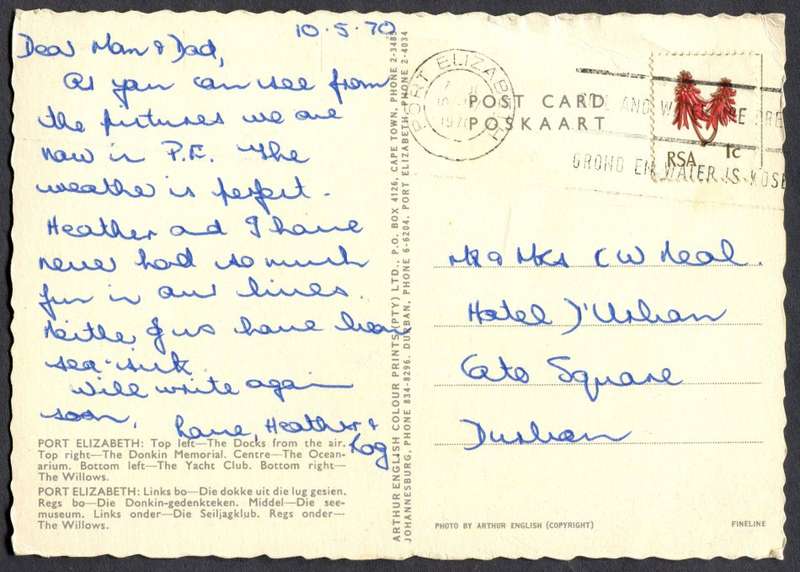 10.5.70
Dear Mam & Dad,
As you can see from
the pictures we are
now in P.E. The
weather is perfect.
Heather and I have
never had so much
fun in our lives.
Neither of us have been
sea-sick.
Will write again
soon,
Love, Heather &
PORT ELIZABETH: Top left—The Docks from the air.
Top right—The Donkin Memorial. Centre—The Ocean-
arium. Bottom left—The Yacht Club. Bottom right—
The Willows.
PORT ELIZABETH: Links bo—Die dokke uit die lug gesien.
Regs bo—Die Donkin-gedenkteken. Middel—Die see-
museum. Links onder—Die Seiljagklub. Regs onder—
The Willows.
ARTHUR ENGLISH COLOUR PRINTS (PTY) LTD., P.O. BOX 4126, CAPE TOWN, PHONE 2-3485
JOHANNESBURG, PHONE 834-8296, DURBAN, PHONE 6-6204, PORT ELIZABETH, PHONE 2-4034
PORT ELIZABETH
1970
POST CARD
POSKAART
RSA 1c
GROND EN WATER IS
Mr & Mrs C W Neal.
Hotel D'Urban
Cato Square
Durban
PHOTO BY ARTHUR ENGLISH (COPYRIGHT)
FINELINE